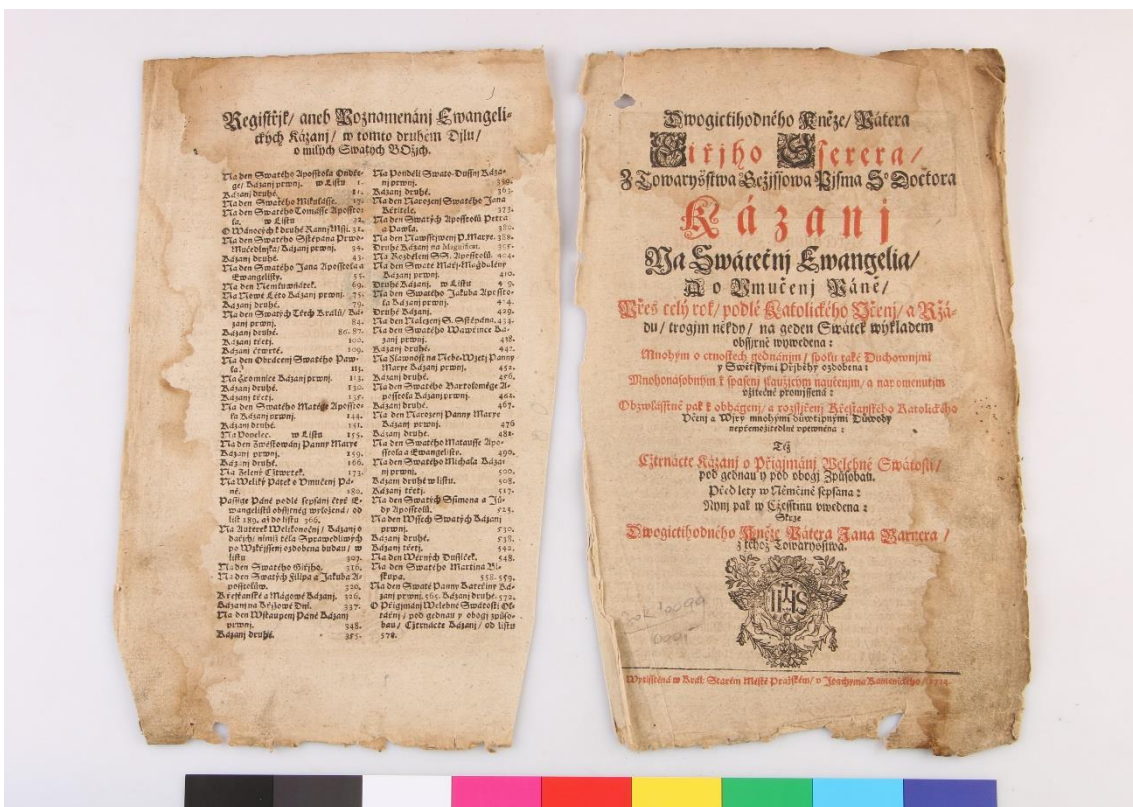 Registřjk/ aneb Poznamenánj Ewangeli-
ckých Kázanj/ w tomto druhém Djlu/
o milých Swatých BOžjch.
Na den Swatého Apoſſtola Ondře-
ge/ Kázanj prwnj. w Liſtu 1.
Kázanj druhé. 11.
Na den Swatého Mikuláſſe. 17.
Na den Swatého Tomáſſe Apoſſto-
la. w Liſtu 22.
O Wánocých k druhé Rannj Mſſi. 31.
Na den Swatého Sſtěpána Prwo-
Mučedlnjka/ Kázanj prwnj. 39.
Kázanj druhé. 43.
Na den Swatého Jana Apoſſtola a
Ewangeliſty. 55.
Na den Memluwňátek. 69.
Na Nowé Léto Kázanj prwnj. 75.
Kázanj druhé. 79.
Na den Swatých Třech Králů/ Ká-
zanj prwnj. 84.
Kázanj druhé. 86. 87.
Kázanj třetj. 100.
Kázanj čtwrté. 109.
Na den Obrácenj Swatého Paw-
la. 113.
Na Hromnice Kázanj prwnj. 123.
Kázanj druhé. 130.
Kázanj třetj. 135.
Na den Swatého Matěge Apoſſto-
la Kázanj prwnj. 144.
Kázanj druhé. 151.
Na Popelec. w Liſtu 155.
Na den Zwěſtowánj Panny Marye
Kázanj prwnj. 159.
Kázanj druhé. 166.
Na Zelený Cžtwrtek. 173.
Na Weliký Pátek o Vmučenj Pá-
ně. 180.
Paſſige Páně podlé ſepſánj čtyř E-
wangeliſtů obſſjrněg wyložená/ od
liſt 189. až do liſtu 366.
Na Auterek Welikonočnj/ Kázanj o
dařjch/ nimiž těla Sprawedliwých
po Wzkřjſſenj ozdobena budau/ w
liſtu 307.
Na den Swatého Giřjho. 316.
Na den Swatých Filipa a Jakuba A-
poſſtolůw. 320.
Křeſťanſké a Mágowé Kázanj. 326.
Kázanj na Křjžowé Dni. 337.
Na den Wſtaupenj Páně Kázanj
prwnj. 348.
Kázanj druhé. 355.
Na Pondělj Swato-Duſſnj Káza-
nj prwnj. 359.
Kázanj druhé. 363.
Na den Narozenj Swatého Jana
Křtitele. 373.
Na den Swatých Apoſſtolů Petra
a Pawla. 380.
Na den Nawſſtjwenj P. Marye. 388.
Druhé Kázanj na Magnificat. 395.
Na Rozdělenj SS. Apoſſtolů. 404.
Na den Swaté Mařj-Magdalény
Kázanj prwnj. 410.
Druhé Kázanj. w Liſtu 419.
Na den Swatého Jakuba Apoſſto-
la Kázanj prwnj. 424.
Druhé Kázanj. 429.
Na den Nalezenj S. Sſtěpána. 434.
Na den Swatého Wawřince Ká-
zanj prwnj. 438.
Kázanj druhé. 442.
Na Slawnoſt na Nebe-Wzetj Panny
Marye Kázanj prwnj. 452.
Kázanj druhé. 456.
Na den Swatého Bartoloměge A-
poſſtola Kázanj prwnj. 462.
Kázanj druhé. 467.
Na den Narozenj Panny Marye
Kázanj prwnj. 476
Kázanj druhé. 481.
Na den Swatého Matauſſe Apo-
ſſtola a Ewangeliſty. 490.
Na den Swatého Michala Káza-
nj prwnj. 500.
Kázanj druhé w liſtu. 508.
Kázanj třetj. 517.
Na den Swatých Sſimona a Jů-
dy Apoſſtolů. 525.
Na den Wſſech Swatých Kázanj
prwnj. 530.
Kázanj druhé. 538.
Kázanj třetj. 542.
Na den Wěrných Duſſiček. 548.
Na den Swatého Martina Bi-
ſkupa. 558. 559.
Na den Swaté Panny Kateřiny Ká-
zanj prwnj. 565. Kázanj druhé. 572.
O Přigjmánj Welebné Swátoſti Ol-
tářnj/ pod gednau y obogj způſo-
bau/ Cžtrnácte Kázanj/ od liſtu
578.
Dwogictihodného Kněze/ Pátera
Giřjho Sſerera/
Z Towaryšſtwa Gežjſſowa Pjſma Sº Doctora
Kázanj
Na Swátečnj Ewangelia/
A o Vmučenj Páně/
Přes celý rok/ podlé Katolického Včenj/ a Ržá-
du/ trogjm někdy/ na geden Swátek wýkladem
obſſjrně wywedena:
Mnohým o ctnoſtech gednánjm/ ſpolu také Duchownjmi
y Swětſkými Přjběhy ozdobena:
Mnohonáſobným k ſpaſenj ſlaužjcým naučenjm/ a napomenutjm
vžitečně promjſſená:
Obzwláſſtně pak k obhágenj/ a rozſſjřenj Křeſťanſkého Katolického
Včenj a Wjry mnohými důwtipnými Důwody
nepřemožitedlně vpewněna:
Též
Cžtrnácte Kázanj o Přigjmánj Welebné Swátoſti/
pod gednau y pod obogj Způſobau.
Před lety w Němčině ſepſána:
Nynj pak w Cžeſſtinu vwedena:
Skrze
Dwogictihodného Kněze Pátera Jana Barnera/
z téhož Towaryšſtwa.
IHS
Wytiſſtěná w Král: Starém Měſtě Pražſkém/ v Joachyma Kamenického/ 1724.